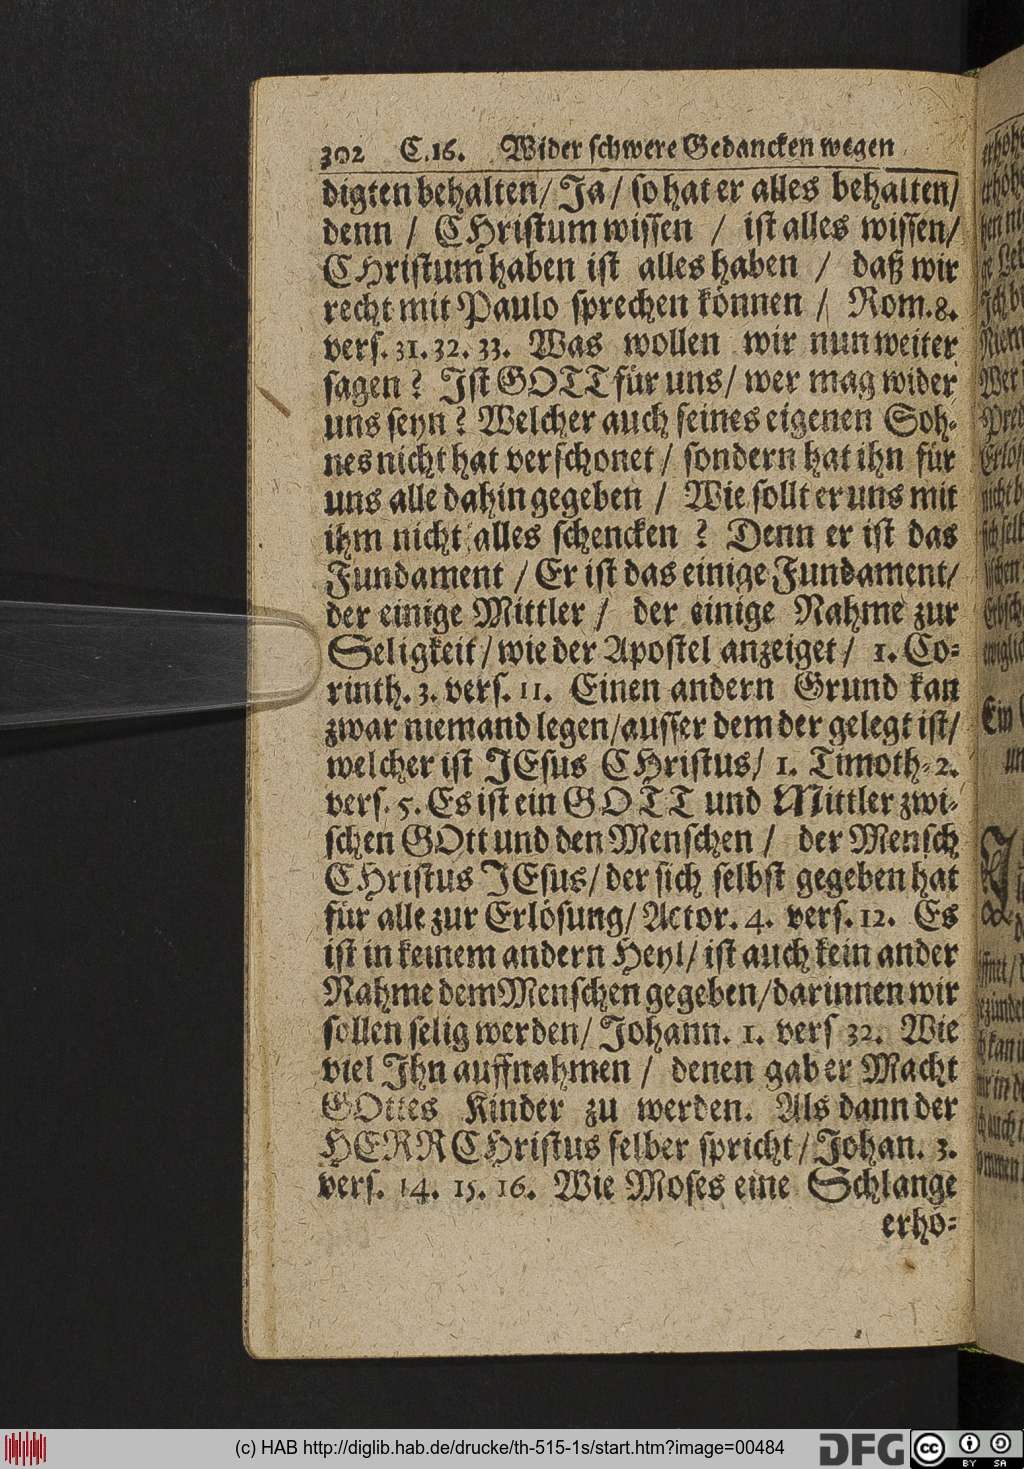 302 C. 16. Wider schwere Gedancken wegen
digten behalten/ Ja / so hat er alles behalten/
denn / CHristum wissen / ist alles wissen/
CHristum haben ist alles haben / daß wir
recht mit Paulo sprechen können / Rom. 8.
vers. 31. 32. 33. Was wollen wir nun weiter
sagen ? Ist GOTT für uns/ wer mag wider
uns seyn ? Welcher auch seines eigenen Soh-
nes nicht hat verschonet / sondern hat ihn für
uns alle dahin gegeben / Wie sollt er uns mit
ihm nicht alles schencken ? Denn er ist das
Fundament / Er ist das einige Fundament/
der einige Mittler / der einige Nahme zur
Seligkeit / wie der Apostel anzeiget / 1. Co-
rinth. 3. vers. 11. Einen andern Grund kan
zwar niemand legen/ausser dem der gelegt ist/
welcher ist JEsus CHristus/ 1. Timoth. 2.
vers. 5. Es ist ein GOTT und Mittler zwi-
schen GOtt und den Menschen / der Mensch
CHristus JEsus/ der sich selbst gegeben hat
für alle zur Erlösung/ Actor. 4. vers. 12. Es
ist in keinem andern Heyl/ ist auch kein ander
Nahme dem Menschen gegeben/darinnen wir
sollen selig werden/ Johann. 1. vers 32. Wie
viel Ihn auffnahmen / denen gab er Macht
GOttes Kinder zu werden. Als dann der
HERR CHristus selber spricht / Johan. 3.
vers. 14. 15. 16. Wie Moses eine Schlange
erhö-
(c) HAB http://diglib.hab.de/drucke/th-515-1s/start.htm?image=00484
DFG
cc BY SA